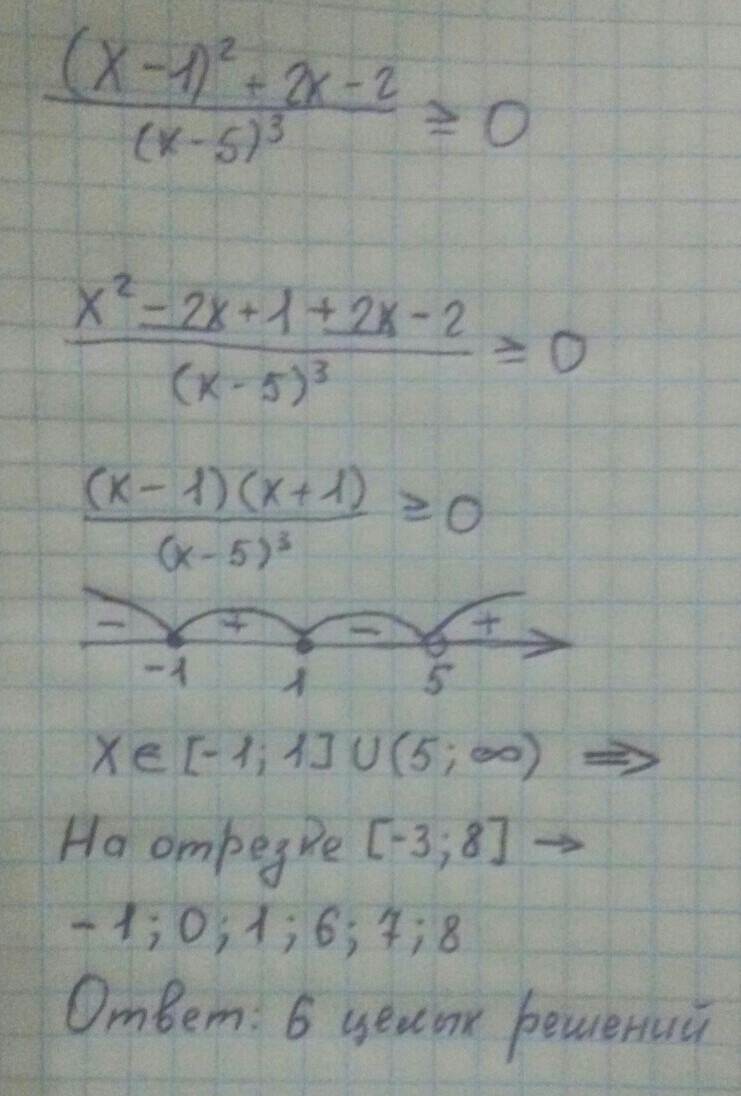 (x-1)² + 2x-2 / (x-5)³ ≥ 0
x² - 2x + 1 + 2x - 2 / (x-5)³ ≥ 0
(x-1)(x+1) / (x-5)³ ≥ 0
- + - +
-1 1 5
x ∈ [-1; 1] ∪ (5; ∞) ⇒
На отрезке [-3; 8] →
-1; 0; 1; 6; 7; 8
Ответ: 6 целых решений